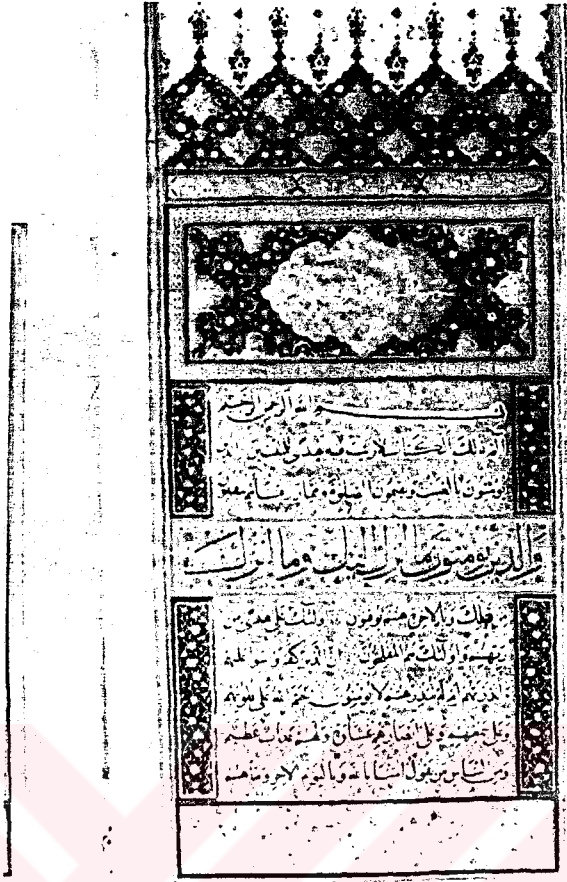 بسم الله الرحمن الرحيم
الم ذلك الكتاب لاريب فيه هدى للمتقين الذين
يؤمنون بالغيب ويقيمون الصلوة ومما رزقناهم ينفقون
والذين يؤمنون بما انزل اليك وما انزل
من قبلك وبالاخرة هم يوقنون اولئك على هدى من
ربهم واولئك هم المفلحون ان الذين كفروا سواء عليهم
ءانذرتهم ام لم تنذرهم لا يؤمنون ختم الله على قلوبهم
وعلى سمعهم وعلى ابصارهم غشاوة ولهم عذاب عظيم
ومن الناس من يقول امنا بالله وباليوم الاخر وما هم